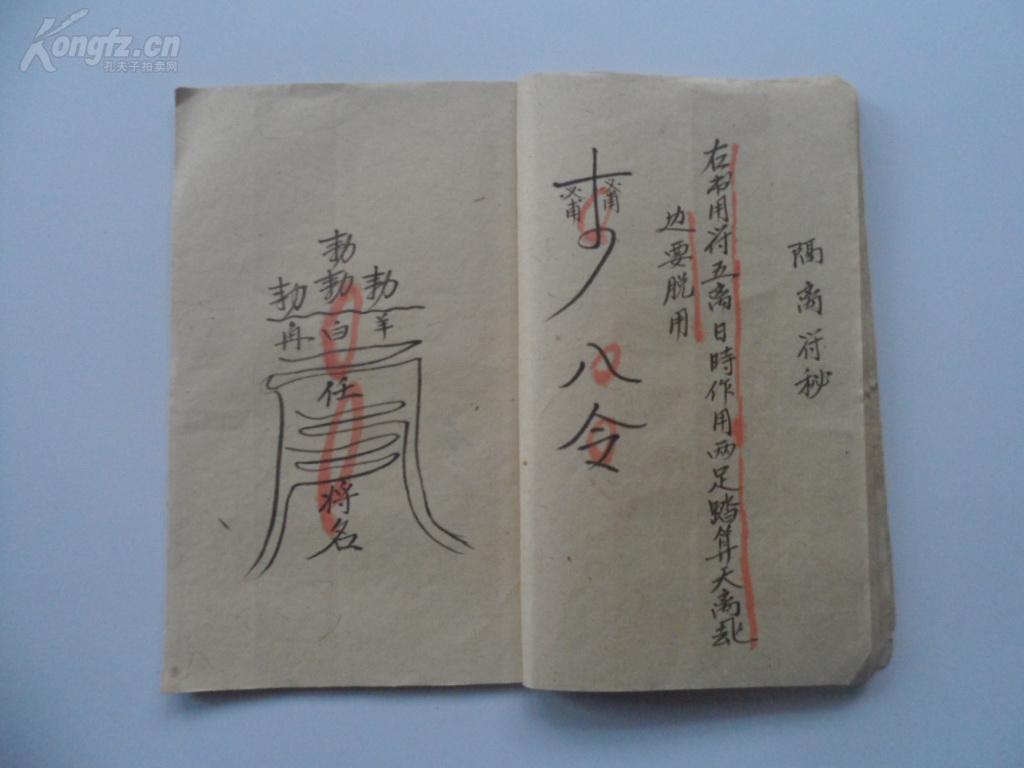 Kongtz.cn
孔夫子拍卖网
隔离符秘
右书用符五离日時作用两足踏算天离卦
边要脱用
八令
勅
勅勅勅
再白羊
任
将名